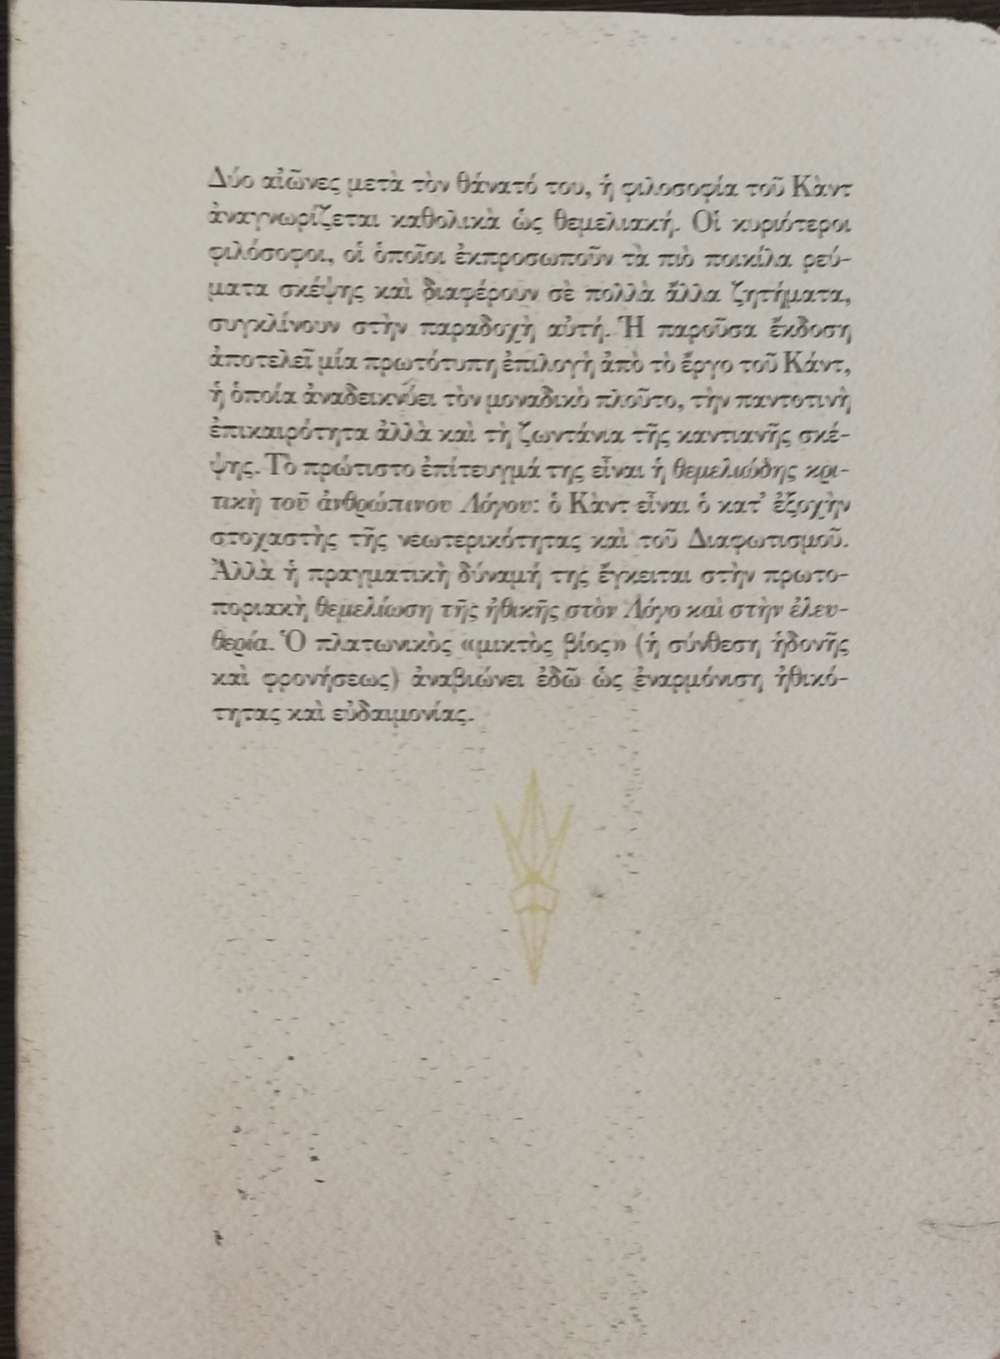 Δύο αἰῶνες μετὰ τὸν θάνατό του, ἡ φιλοσοφία τοῦ Κὰντ
ἀναγνωρίζεται καθολικὰ ὡς θεμελιακή. Οἱ κυριότεροι
φιλόσοφοι, οἱ ὁποῖοι ἐκπροσωποῦν τὰ πιὸ ποικίλα ρεύ-
ματα σκέψης καὶ διαφέρουν σὲ πολλὰ ἄλλα ζητήματα,
συγκλίνουν στὴν παραδοχὴ αὐτή. Ἡ παροῦσα ἔκδοση
ἀποτελεῖ μία πρωτότυπη ἐπιλογὴ ἀπὸ τὸ ἔργο τοῦ Κάντ,
ἡ ὁποία ἀναδεικνύει τὸν μοναδικὸ πλοῦτο, τὴν παντοτινὴ
ἐπικαιρότητα ἀλλὰ καὶ τὴ ζωντάνια τῆς καντιανῆς σκέ-
ψης. Τὸ πρώτιστο ἐπίτευγμά της εἶναι ἡ θεμελιώδης κρι-
τικὴ τοῦ ἀνθρώπινου Λόγου: ὁ Κὰντ εἶναι ὁ κατ’ ἐξοχὴν
στοχαστὴς τῆς νεωτερικότητας καὶ τοῦ Διαφωτισμοῦ.
Ἀλλὰ ἡ πραγματικὴ δύναμή της ἔγκειται στὴν πρωτο-
ποριακὴ θεμελίωση τῆς ἠθικῆς στὸν Λόγο καὶ στὴν ἐλευ-
θερία. Ὁ πλατωνικὸς «μικτὸς βίος» (ἡ σύνθεση ἡδονῆς
καὶ φρονήσεως) ἀναβιώνει ἐδῶ ὡς ἐναρμόνιση ἠθικό-
τητας καὶ εὐδαιμονίας.